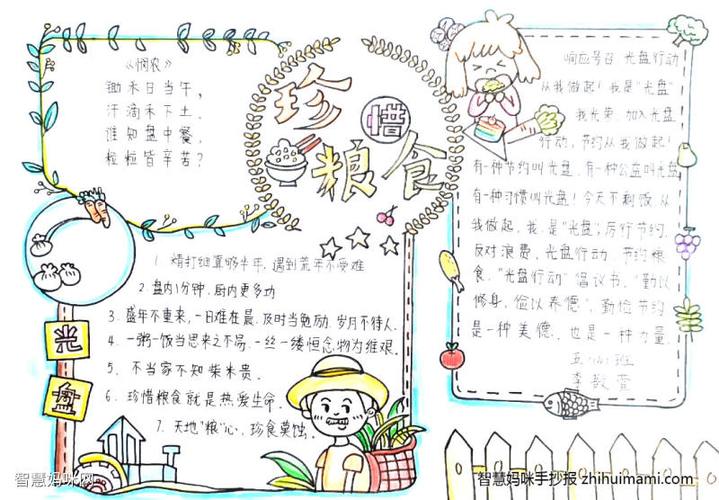 《悯农》
锄禾日当午，
汗滴禾下土。
谁知盘中餐，
粒粒皆辛苦？
珍惜
粮食
响应号召 光盘行动
从我做起！我是“光盘”
我光荣，加入光盘
行动，节约从我做起！
有一种节约叫光盘，有一种公益叫光盘
有一种习惯叫光盘！今天不剩饭，从
我做起，我是“光盘”；厉行节约，
反对浪费，光盘行动 节约粮
食，“光盘行动”倡议书，“勤以
修身，俭以养德”，勤俭节约
是一种美德，也是一种力量。
班
李
1 精打细算够半年，遇到荒年不受难
2 盘内1分钟，厨内更多功
3、盛年不重来，一日难在晨，及时当勉励，岁月不待人、
4、一粥一饭当思来之不易，一丝一缕恒念物力维艰。
5、不当家不知柴米贵。
6、珍惜粮食就是热爱生命。
7、天地“粮”心，珍食莫蚀。
光
盘
智慧妈咪网
智慧妈咪手抄报 zhihuimami.com